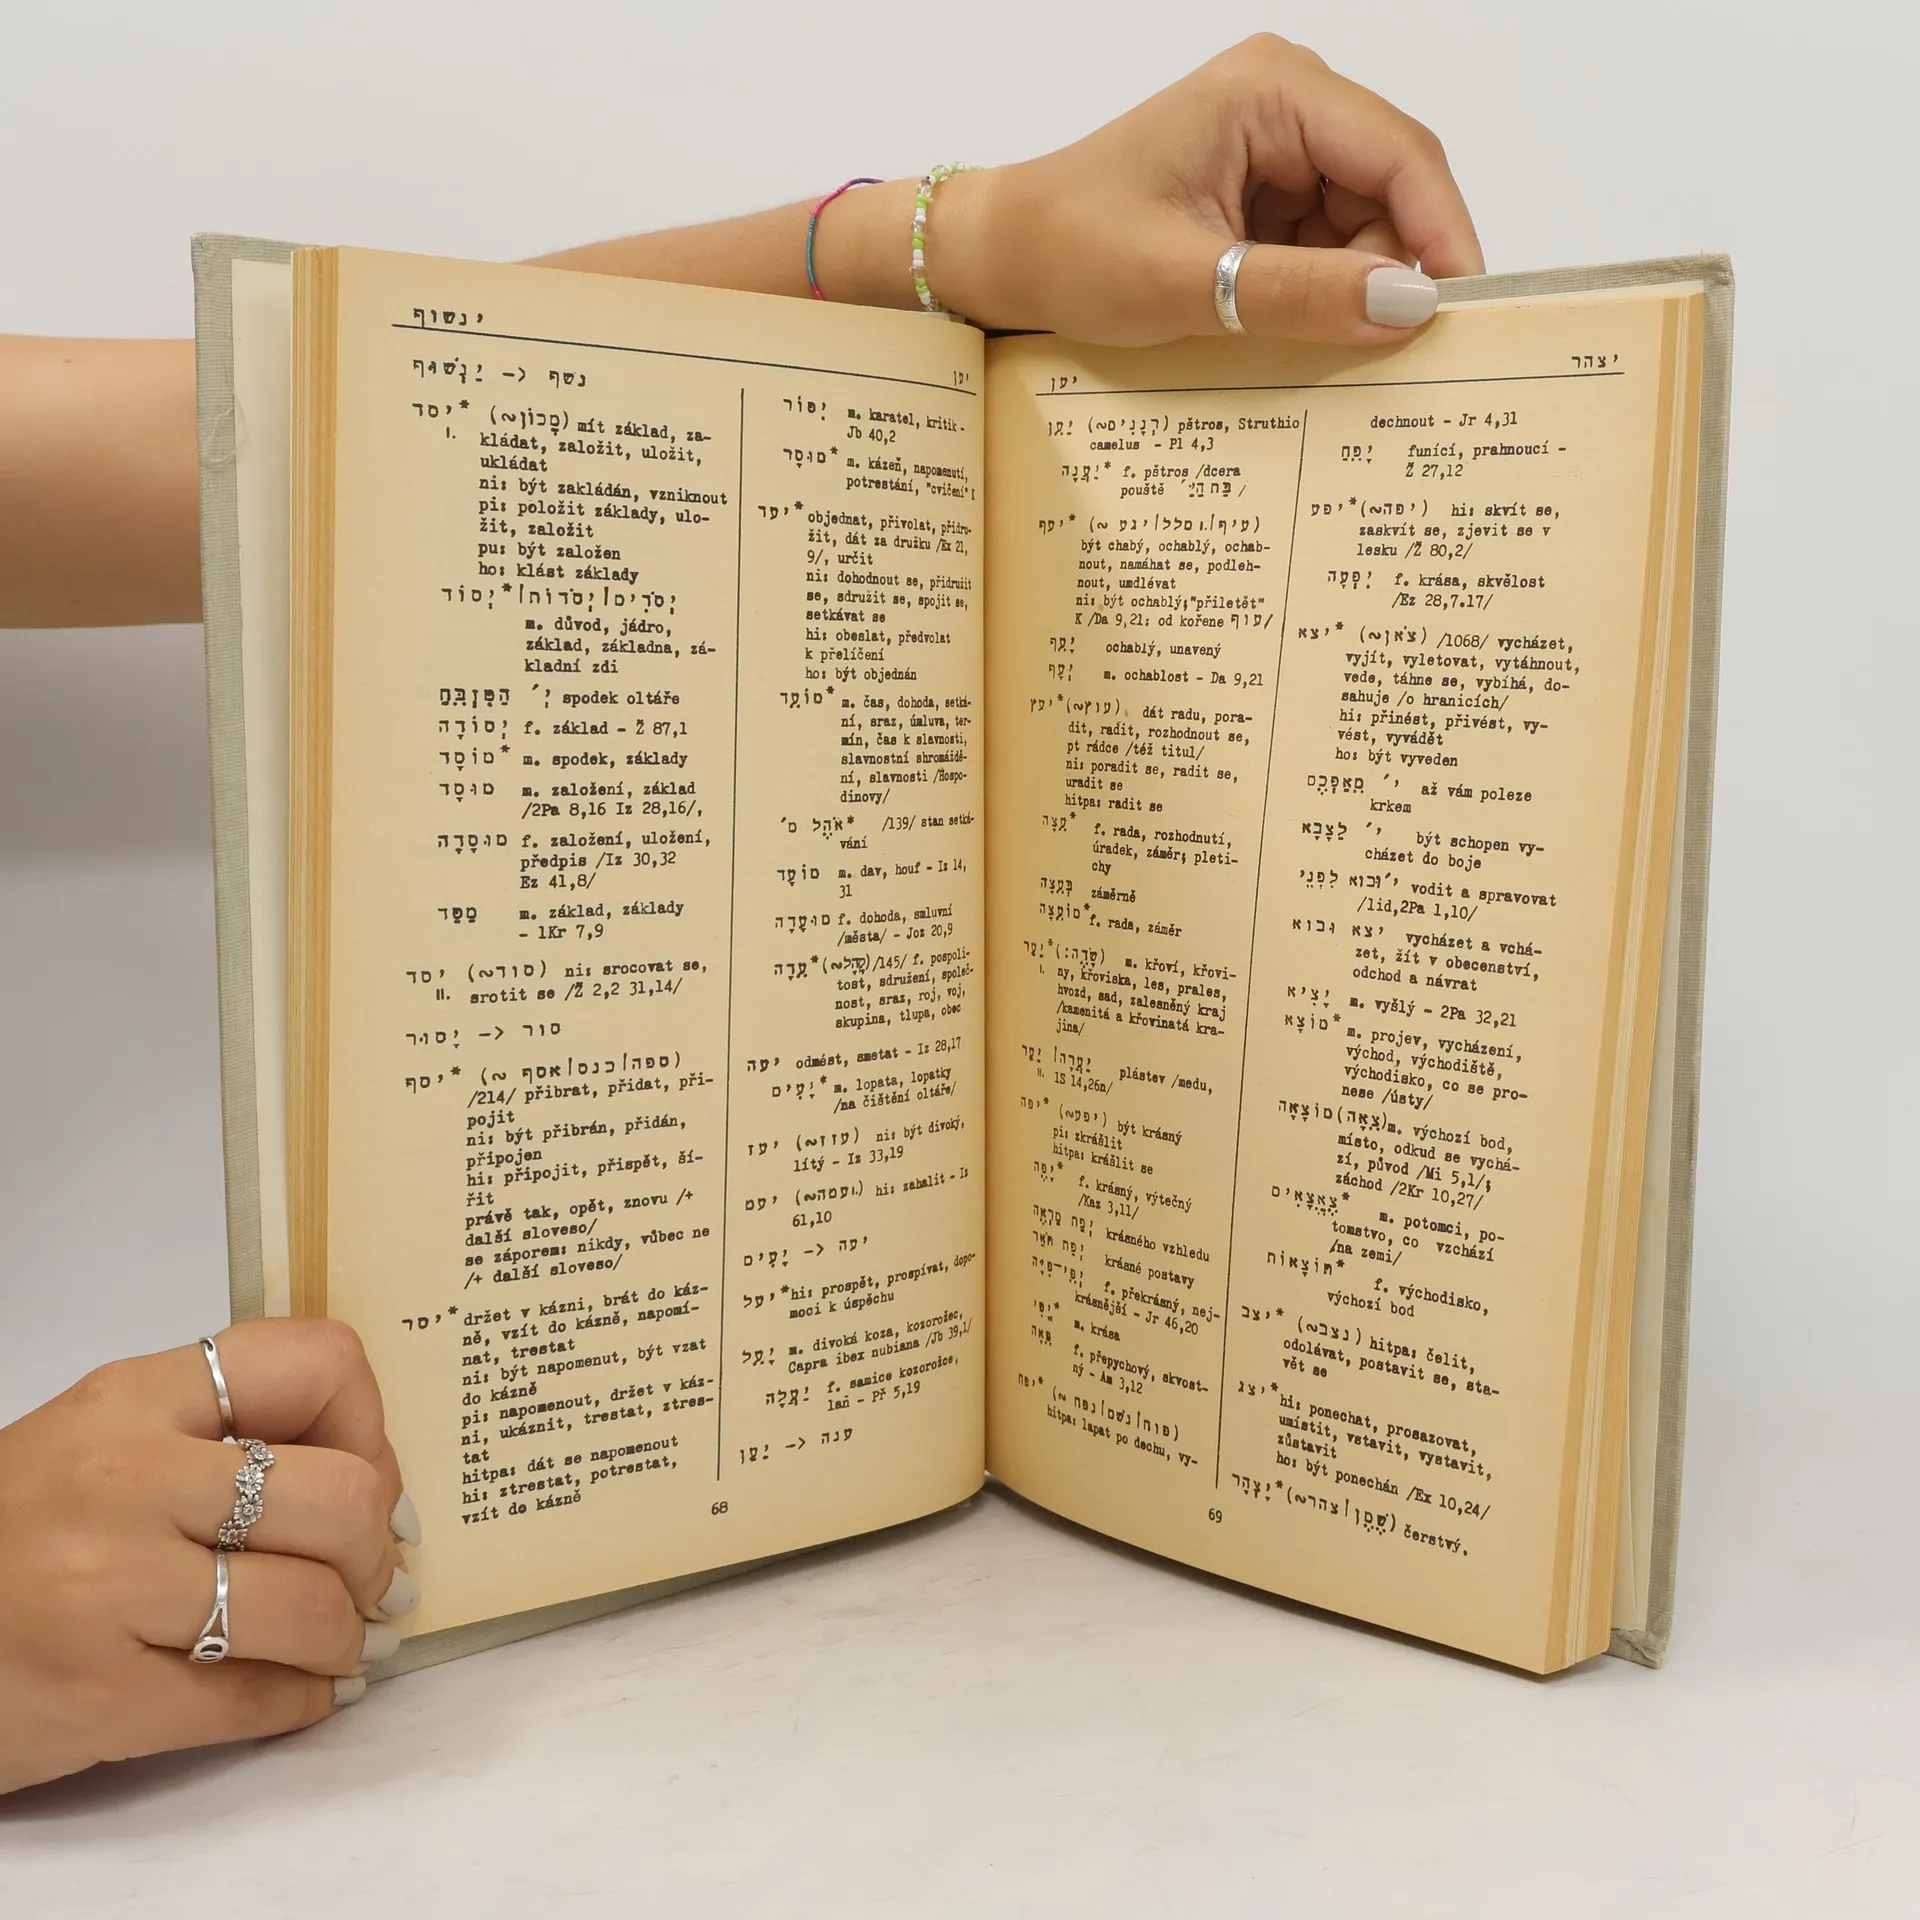 ינשוף
יען
יַנְשׁוּף <- נשף
יסד* (~מָכוֹן) mít základ, za-
I. kládat, založit, uložit,
ukládat
ni: být zakládán, vzniknout
pi: položit základy, ulo-
žit, založit
pu: být založen
ho: klást základy
יְסוֹד*|יְסֹדוֹת|יְסֹדִים
m. důvod, jádro,
základ, základna, zá-
kladní zdi
י´ הַמִּזְבֵּחַ spodek oltáře
יְסוֹדָה f. základ - Ž 87,1
מוֹסָד* m. spodek, základy
מוּסָד m. založení, základ
/2Pa 8,16 Iz 28,16/,
מוּסָדָה f. založení, uložení,
předpis /Iz 30,32
Ez 41,8/
מַסָּד m. základ, základy
- 1Kr 7,9
יסד (~סוד) ni: srocovat se,
II. srotit se /Ž 2,2 31,14/
יָסוּר <- סור
יסף* (~ אסף|כנס|ספה)
/214/ přibrat, přidat, při-
pojit
ni: být přibrán, přidán,
připojen
hi: připojit, přispět, ší-
řit
právě tak, opět, znovu /+
další sloveso/
se záporem: nikdy, vůbec ne
/+ další sloveso/
יסר* držet v kázni, brát do káz-
ně, vzít do kázně, napomí-
nat, trestat
ni: být napomenut, být vzat
do kázně
pi: napomenout, držet v káz-
ni, ukáznit, trestat, ztres-
tat
hitpa: dát se napomenout
hi: ztrestat, potrestat,
vzít do kázně
יִסּוֹר m. karatel, kritik -
Jb 40,2
מוּסָר* m. kázeň, napomenutí,
potrestání, "cvičení"
יעד* objednat, přivolat, přidru-
žit, dát za družku /Ex 21,
9/, určit
ni: dohodnout se, přidružit
se, sdružit se, spojit se,
setkávat se
hi: obeslat, předvolat
k přelíčení
ho: být objednán
מוֹעֵד* m. čas, dohoda, setká-
ní, sraz, úmluva, ter-
mín, čas k slavnosti,
slavnostní shromáždě-
ní, slavnosti /Hospo-
dinovy/
אֹהֶל מ´* /139/ stan setká-
vání
מוֹעָד m. dav, houf - Iz 14,
31
מוּעָדָה f. dohoda, smluvní
/města/ - Joz 20,9
עֵדָה* (~קָהָל) /145/ f. pospoli-
tost, sdružení, společ-
nost, sraz, roj, voj,
skupina, tlupa, obec
יעה odmést, smetat - Iz 28,17
יָעִים* m. lopata, lopatky
/na čištění oltáře/
יעז (~עזז) ni: být divoký,
lítý - Iz 33,19
יעט (~עטה.ו) hi: zahalit - Iz
61,10
יָעִים <- יעה
יעל* hi: prospět, prospívat, dopo-
moci k úspěchu
יָעֵל m. divoká koza, kozorožec,
Capra ibex nubiana /Jb 39,1/
יַעֲלָה f. samice kozorožce,
laň - Př 5,19
יַעַן <- ענה
68
יען
יצהר
יָעֵן (~רְנָנִים) pštros, Struthio
camelus - Pl 4,3
יַעֲנָה* f. pštros /dcera
pouště בַּת הַיַּ´ /
יעף* (~ יגע|סלל.ו|עיף)
být chabý, ochablý, ochab-
nout, namáhat se, podleh-
nout, umdlévat
ni: být ochablý;"přiletět"
K /Da 9,21: od kořene עוף/
יָעֵף ochablý, unavený
יְעָף m. ochablost - Da 9,21
יעץ* (~עוץ) dát radu, pora-
dit, radit, rozhodnout se,
pt rádce /též titul/
ni: poradit se, radit se,
uradit se
hitpa: radit se
עֵצָה* f. rada, rozhodnutí,
úradek, záměr; pleti-
chy
בְּעֵצָה záměrně
מוֹעֵצָה* f. rada, záměr
יַעַר* (:שָׂדֶה) m. křoví, křovi-
I. ny, křoviska, les, prales,
hvozd, sad, zalesněný kraj
/kamenitá a křovinatá kra-
jina/
יַעַר |יַעְרָה plástev /medu,
II. 1S 14,26n/
יפה* (~יפע) být krásný
pi: zkrášlit
hitpa: krášlit se
יָפֶה* f. krásný, výtečný
/Kaz 3,11/
יְפַת מַרְאֶה krásného vzhledu
יְפַת תֹּאַר krásné postavy
יְפֵי־פִיָּה f. překrásný, nej-
krásnější - Jr 46,20
יֳפִי* m. krása
f. přepychový, skvost-
ný - Am 3,12
יפח* (~ נפח|נשם|פוח)
hitpa: lapat po dechu, vy-
dechnout - Jr 4,31
יָפֵחַ funící, prahnoucí -
Ž 27,12
יפע* (~יפה) hi: skvít se,
zaskvít se, zjevit se v
lesku /Ž 80,2/
יִפְעָה f. krása, skvělost
/Ez 28,7.17/
יצא* (~צֹאן) /1068/ vycházet,
vyjít, vyletovat, vytáhnout,
vede, táhne se, vybíhá, do-
sahuje /o hranicích/
hi: přinést, přivést, vy-
vést, vyvádět
ho: být vyveden
י´ מֵאַפְּכֶם až vám poleze
krkem
י´ לַצָּבָא být schopen vy-
cházet do boje
י´וּבוֹא לִפְנֵי vodit a spravovat
/lid,2Pa 1,10/
יצא ובוא vycházet a vchá-
zet, žít v obecenství,
odchod a návrat
יָצִיא m. vyšlý - 2Pa 32,21
מוֹצָא* m. projev, vycházení,
východ, východiště,
východisko, co se pro-
nese /ústy/
מוֹצָאָה(צֵאָה) m. výchozí bod,
místo, odkud se vychá-
zí, původ /Mi 5,1/;
záchod /2Kr 10,27/
צֶאֱצָאִים* m. potomci, po-
tomstvo, co vzchází
/na zemi/
תּוֹצָאוֹת* f. východisko,
výchozí bod
יצב* (~נצב) hitpa: čelit,
odolávat, postavit se, sta-
vět se
יצג* hi: ponechat, prosazovat,
umístit, vstavit, vystavit,
zůstavit
ho: být ponechán /Ex 10,24/
יִצְהָר* (~צהר|שֶׁמֶן) čerstvý,
69